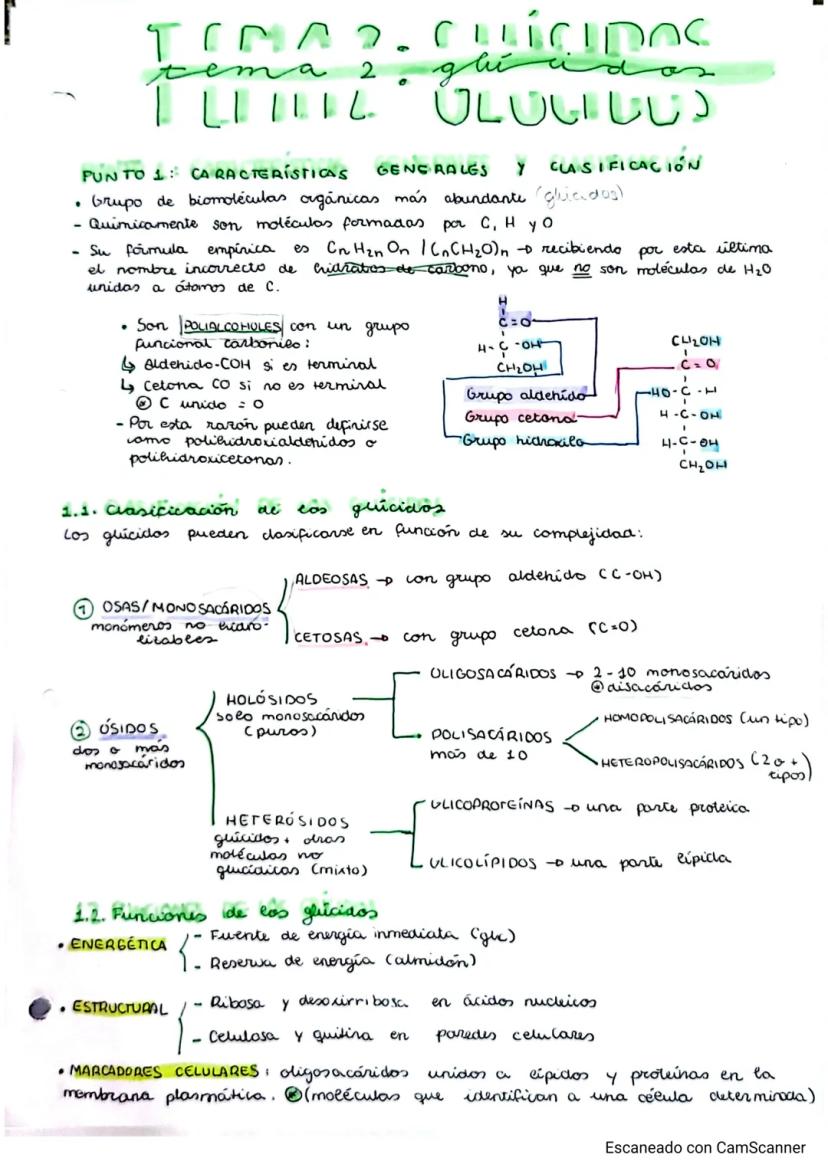 TEMA 2. GLÚCIDOS
tema 2. glúcidos
PUNTO 1: CARACTERÍSTICAS GENERALES Y CLASIFICACIÓN
• Grupo de biomoléculas orgánicas más abundante (glúcidos)
- Químicamente son moléculas formadas por C, H y O
- Su fórmula empírica es CnH2nOn / (CnCH2O)n → recibiendo por esta última
el nombre incorrecto de hidratos de carbono, ya que no son moléculas de H2O
unidas a átomos de C.
• Son POLIALCOHOLES con un grupo
funcional carbonilo:
↳ Aldehido-COH si es terminal
↳ Cetona CO si no es terminal
⊗ C unido = O
- Por esta razón pueden definirse
como polihidroxialdehídos o
polihidroxicetonas.
H
C=O
H-C-OH
CH2OH
Grupo aldehído
Grupo cetona
Grupo hidroxilo
CH2OH
C=O
HO-C-H
H-C-OH
H-C-OH
CH2OH
1.1. Clasificación de los glúcidos
Los glúcidos pueden clasificarse en función de su complejidad:
① OSAS/MONOSACÁRIDOS
monómeros no hidro-
lizables
ALDEOSAS → con grupo aldehído (C-OH)
CETOSAS → con grupo cetona (C=O)
② ÓSIDOS
dos o más
monosacáridos
HOLÓSIDOS
solo monosacáridos
(puros)
OLIGOSACÁRIDOS → 2-10 monosacáridos
⊗ disacáridos
POLISACÁRIDOS
más de 10
HOMOPOLISACÁRIDOS (un tipo)
HETEROPOLISACÁRIDOS (2 o +
tipos)
HETERÓSIDOS
glúcidos + otras
moléculas no
glucídicas (mixto)
GLICOPROTEÍNAS → una parte proteica
GLICOLÍPIDOS → una parte lípida
1.2. Funciones de los glúcidos
• ENERGÉTICA
- Fuente de energía inmediata (glu)
- Reserva de energía (almidón)
• ESTRUCTURAL
- Ribosa y desoxirribosa en ácidos nucleicos
- Celulosa y quitina en paredes celulares
• MARCADORES CELULARES: oligosacáridos unidos a lípidos y proteínas en la
membrana plasmática. ⊗ (moléculas que identifican a una célula determinada)
Escaneado con CamScanner